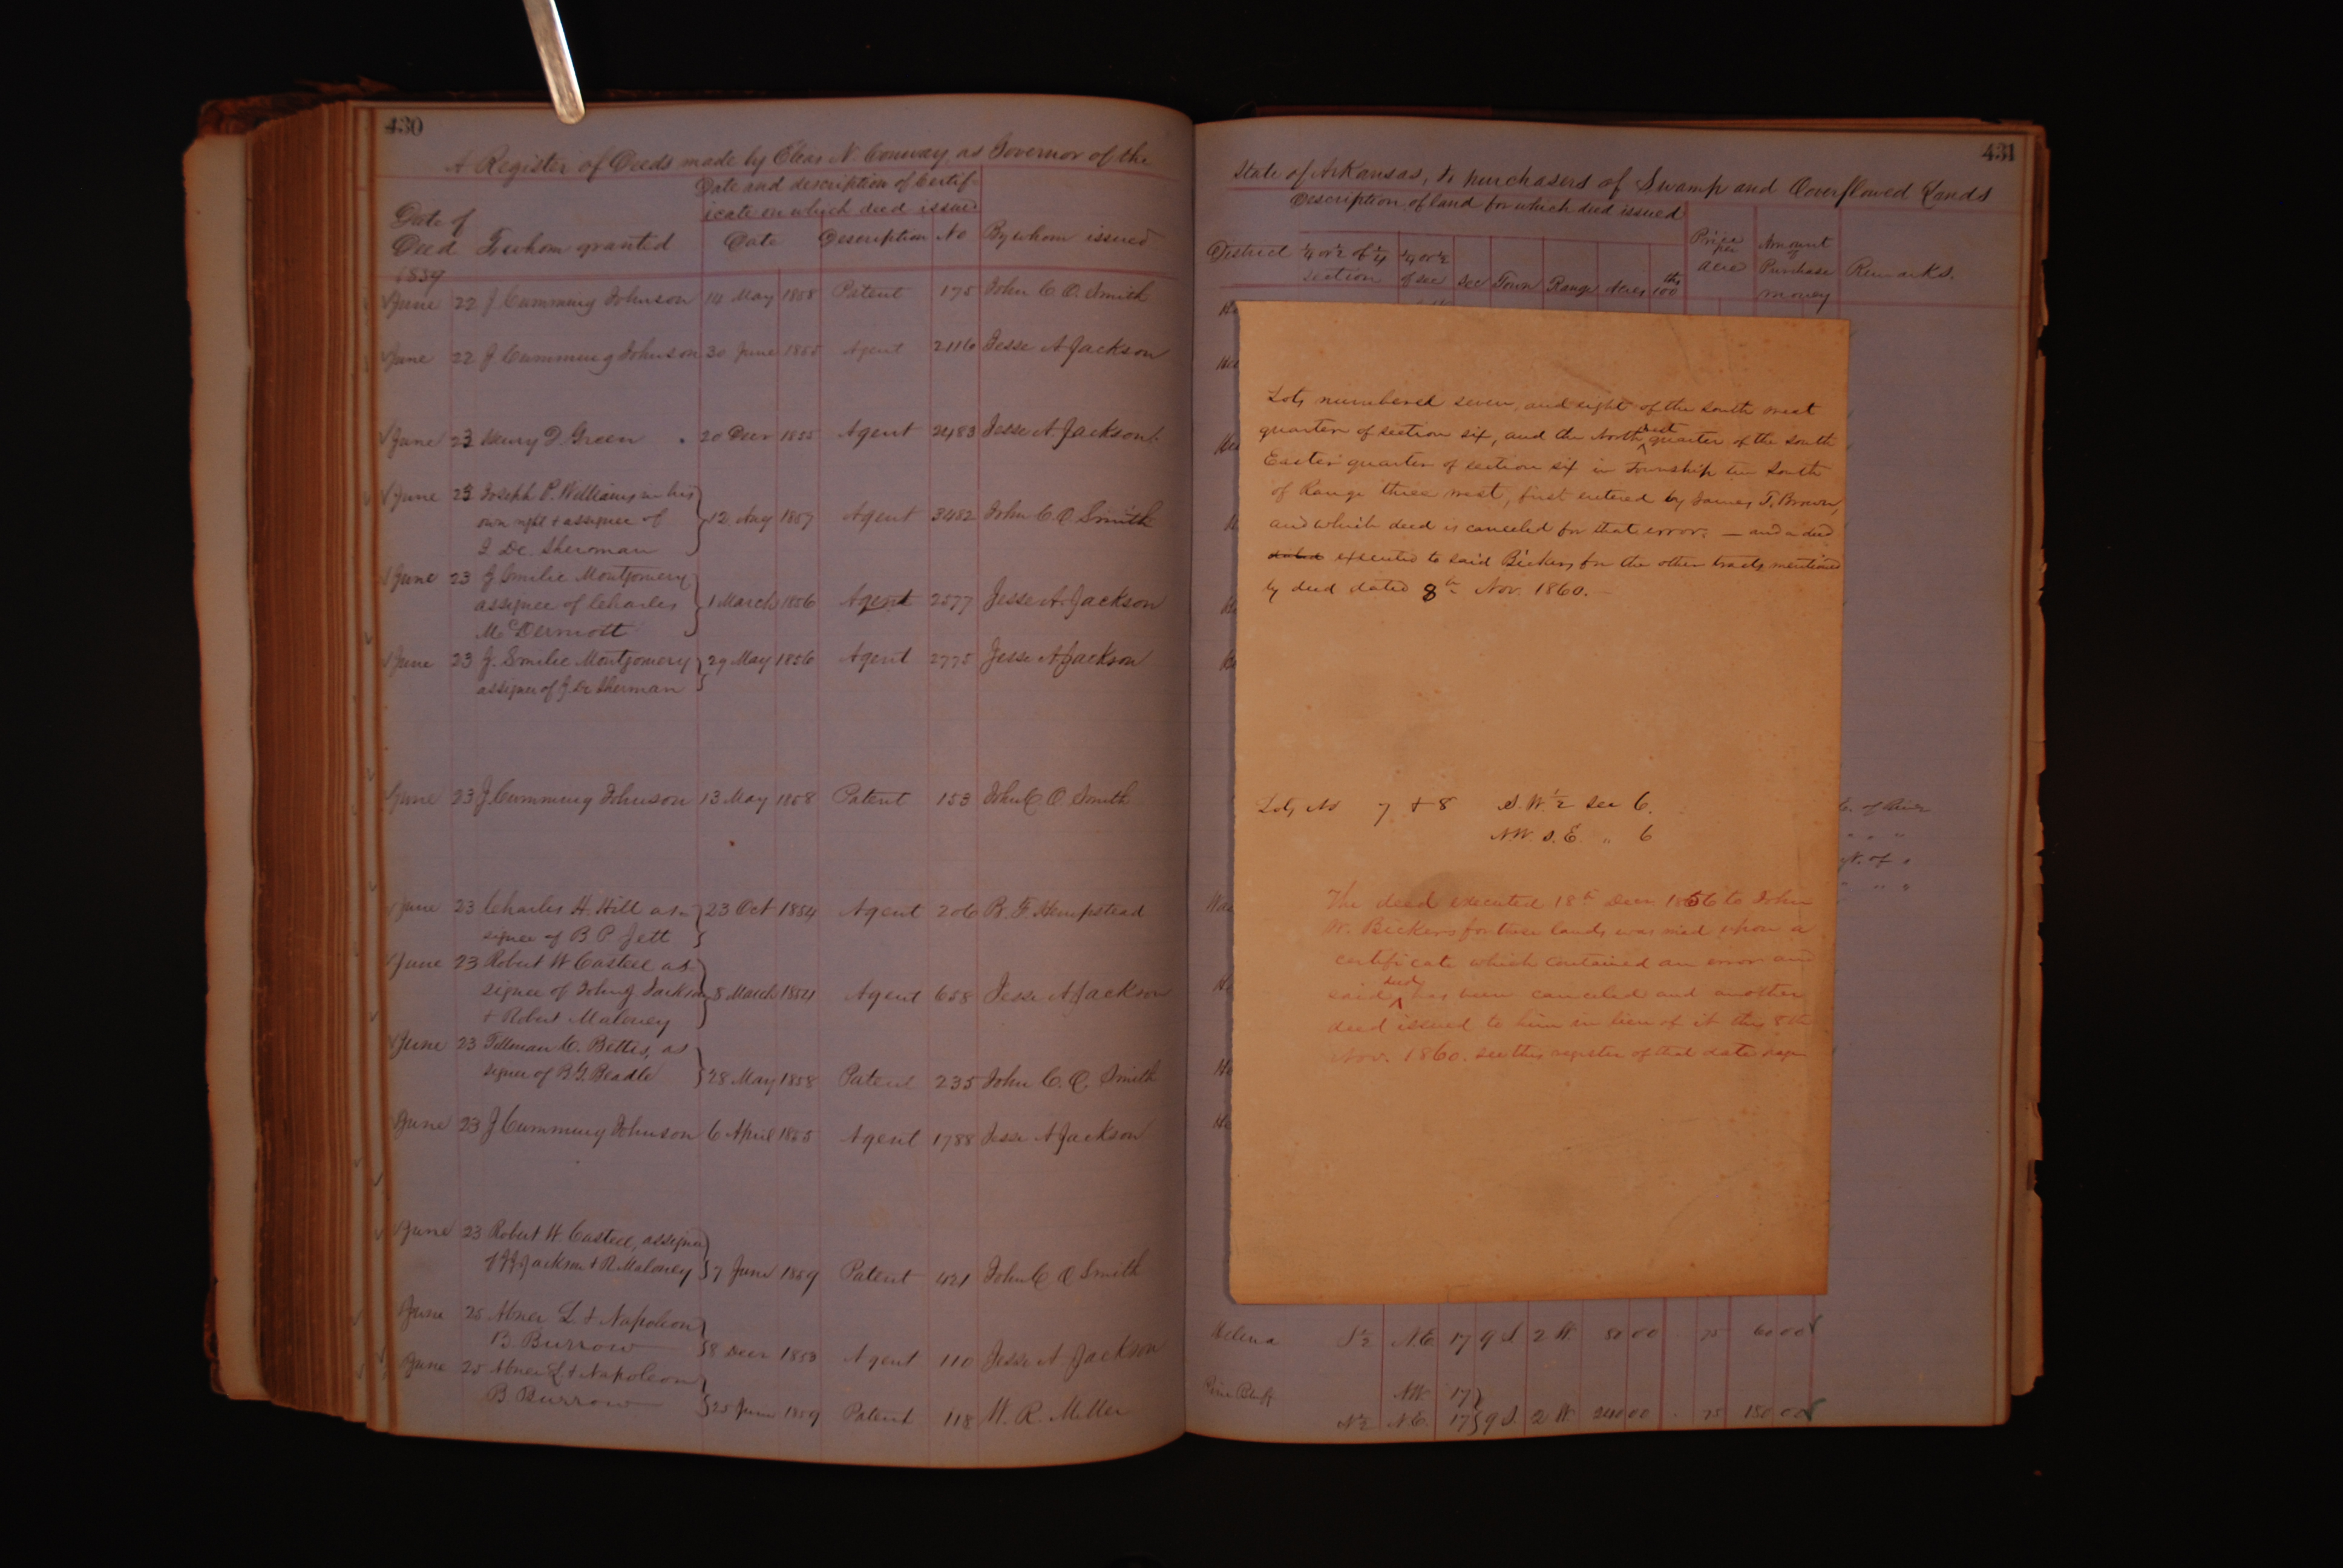 430
A Register of Deeds made by Elias N. Conway, as Governor of the
Date of Deed To whom granted Date and description of Certificate on which deed issued By whom issued
Date Description No
1859
June 22 J Cumming Johnson 14 May 1858 Patent 175 John C O. Smith
June 22 J Cumming Johnson 30 June 1855 Agent 2116 Jesse A Jackson
June 23 Henry D. Green 20 Decr 1855 Agent 2483 Jesse A. Jackson
June 23 Joseph P. Williams in his
own right & assignee of 12. Aug 1857 Agent 3482 John C. O Smith
J. De. Sherman
June 23 J Smilie Montgomery
assignee of Charles 1 March 1856 Agent 2577 Jesse A. Jackson
McDermott
June 23 J. Smilie Montgomery 29 May 1856 Agent 2775 Jesse A Jackson
assignee of J. De Sherman
June 23 J Cumming Johnson 13 May 1858 Patent 153 John C O Smith
June 23 Charles H. Hill as- 23 Oct 1854 Agent 206 B. F. Hempstead
signee of B. P. Jett
June 23 Robert W Casteel as
signee of John J Jackson 8 March 1854 Agent 658 Jesse A Jackson
& Robert Maloney
June 23 Tillman C. Bettis, as
signee of B. G. Beadle 28 May 1858 Patent 235 John C. O. Smith
June 23 J Cumming Johnson 6 April 1855 Agent 1788 Jesse A Jackson
June 23 Robert W. Casteel, assignee
of J J Jackson & R Maloney 7 June 1859 Patent 421 John C O Smith
June 25 Abner L. & Napoleon
B. Burrow 8 Decr 1853 Agent 110 Jesse A Jackson
June 25 Abner L. & Napoleon
B Burrow 25 June 1859 Patent 118 W. R. Miller
431
State of Arkansas, to purchasers of Swamp and Overflowed Lands
Description of land for which deed issued
District ¼ or ½ of ¼ section ¼ or ½ of sec Sec Town Range Acres 100ths Price per acre Amount of Purchase money Remarks.
Lots numbered seven, and eight of the South west
quarter of section six, and the North west quarter of the South
Easter quarter of section six in Township ten South
of Range three west, first entered by James T. Brown,
and which deed is canceled for that error. — and a deed
dated executed to said Bickers for the other tracts mentioned
by deed dated 8th Nov. 1860.
Lots No 7 & 8 S. W. ½ Sec 6.
N.W. S. E. " 6
The deed executed 18th Decr. 1856 to John
W. Bickers for these lands was made upon a
certificate which contained an error and
said deed has been canceled and another
deed issued to him in lieu of it this 8th
Nov. 1860. See this register of that date page
. of River
" " "
. of "
" " "
Helena S½ N.E 17 9 S 2 W. 80 00 . 75 60 00
Pine Bluff NW 17
N½ N.E. 17 9 S. 2 W. 240 00 . 75 180 00